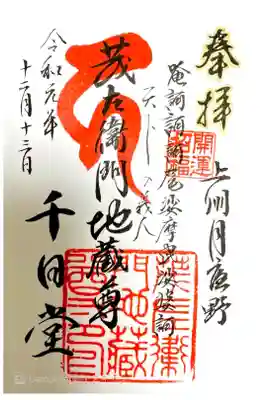 奉拝
上州月夜野
開運
招福
唵訶訶訶尾娑摩曳娑婆訶
天下の義人
茂左衛門地蔵尊
千日堂
令和元年
十二月十三日
茂左衛
門地蔵